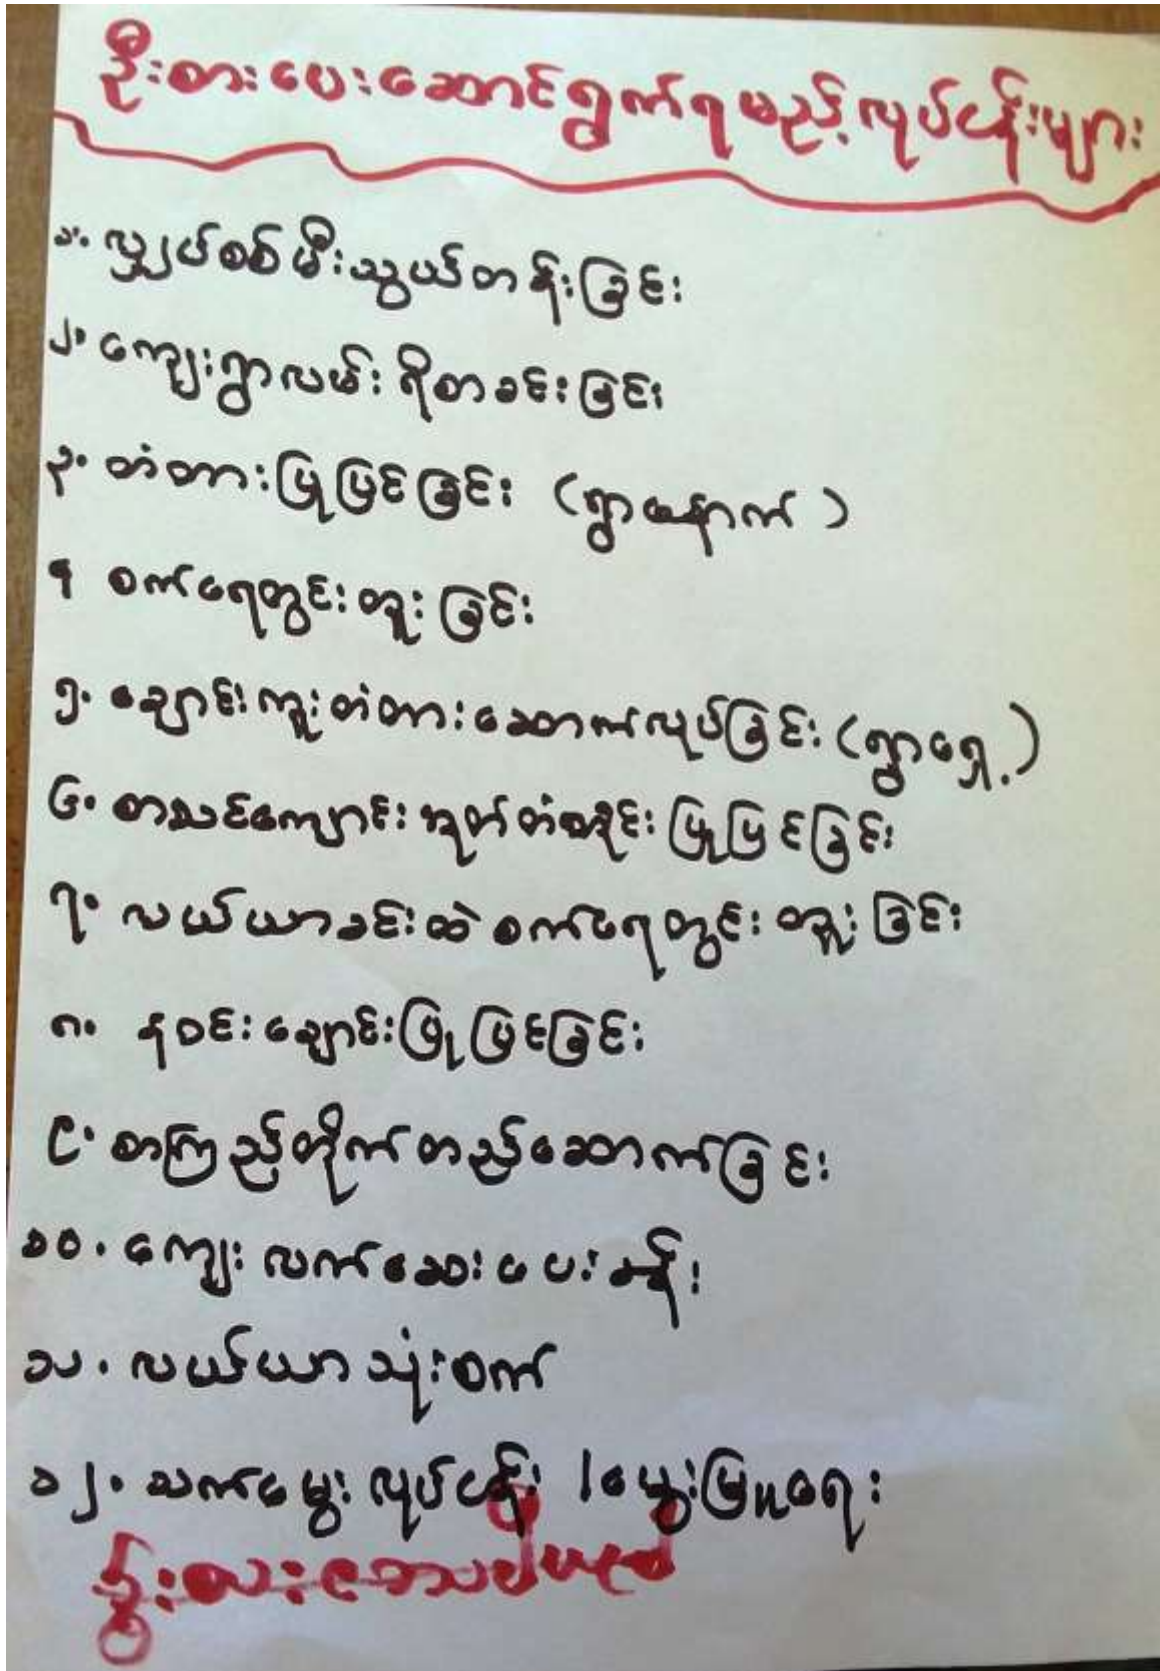 ဦးစားပေးဆောင်ရွက်ရမည့်လုပ်ငန်းများ
၁. လျှပ်စစ်မီးသွယ်တန်းခြင်း
၂. ကျေးရွာလမ်း ရိုတခင်းခြင်း
၃. တံတားပြုပြင်ခြင်း (ရွာနောက်)
၄ စက်ရေတွင်းတူးခြင်း
၅. ချောင်းကူးတံတားဆောက်လုပ်ခြင်း (ရွာရှေ့)
၆. စာသင်ကျောင်း အုတ်တံတိုင်း ပြုပြင်ခြင်း
၇. လယ်ယာခင်းထဲ စက်ရေတွင်း တူးခြင်း
၈. နဝင်းချောင်းပြုပြင်ခြင်း
၉. စာကြည့်တိုက်တည်ဆောက်ခြင်း
၁၀. ကျေးလက်ဆေးပေးခန်း
၁၁. လယ်ယာသုံးစက်
၁၂. သက်မွေးလုပ်ငန်း / မွေးမြူရေး